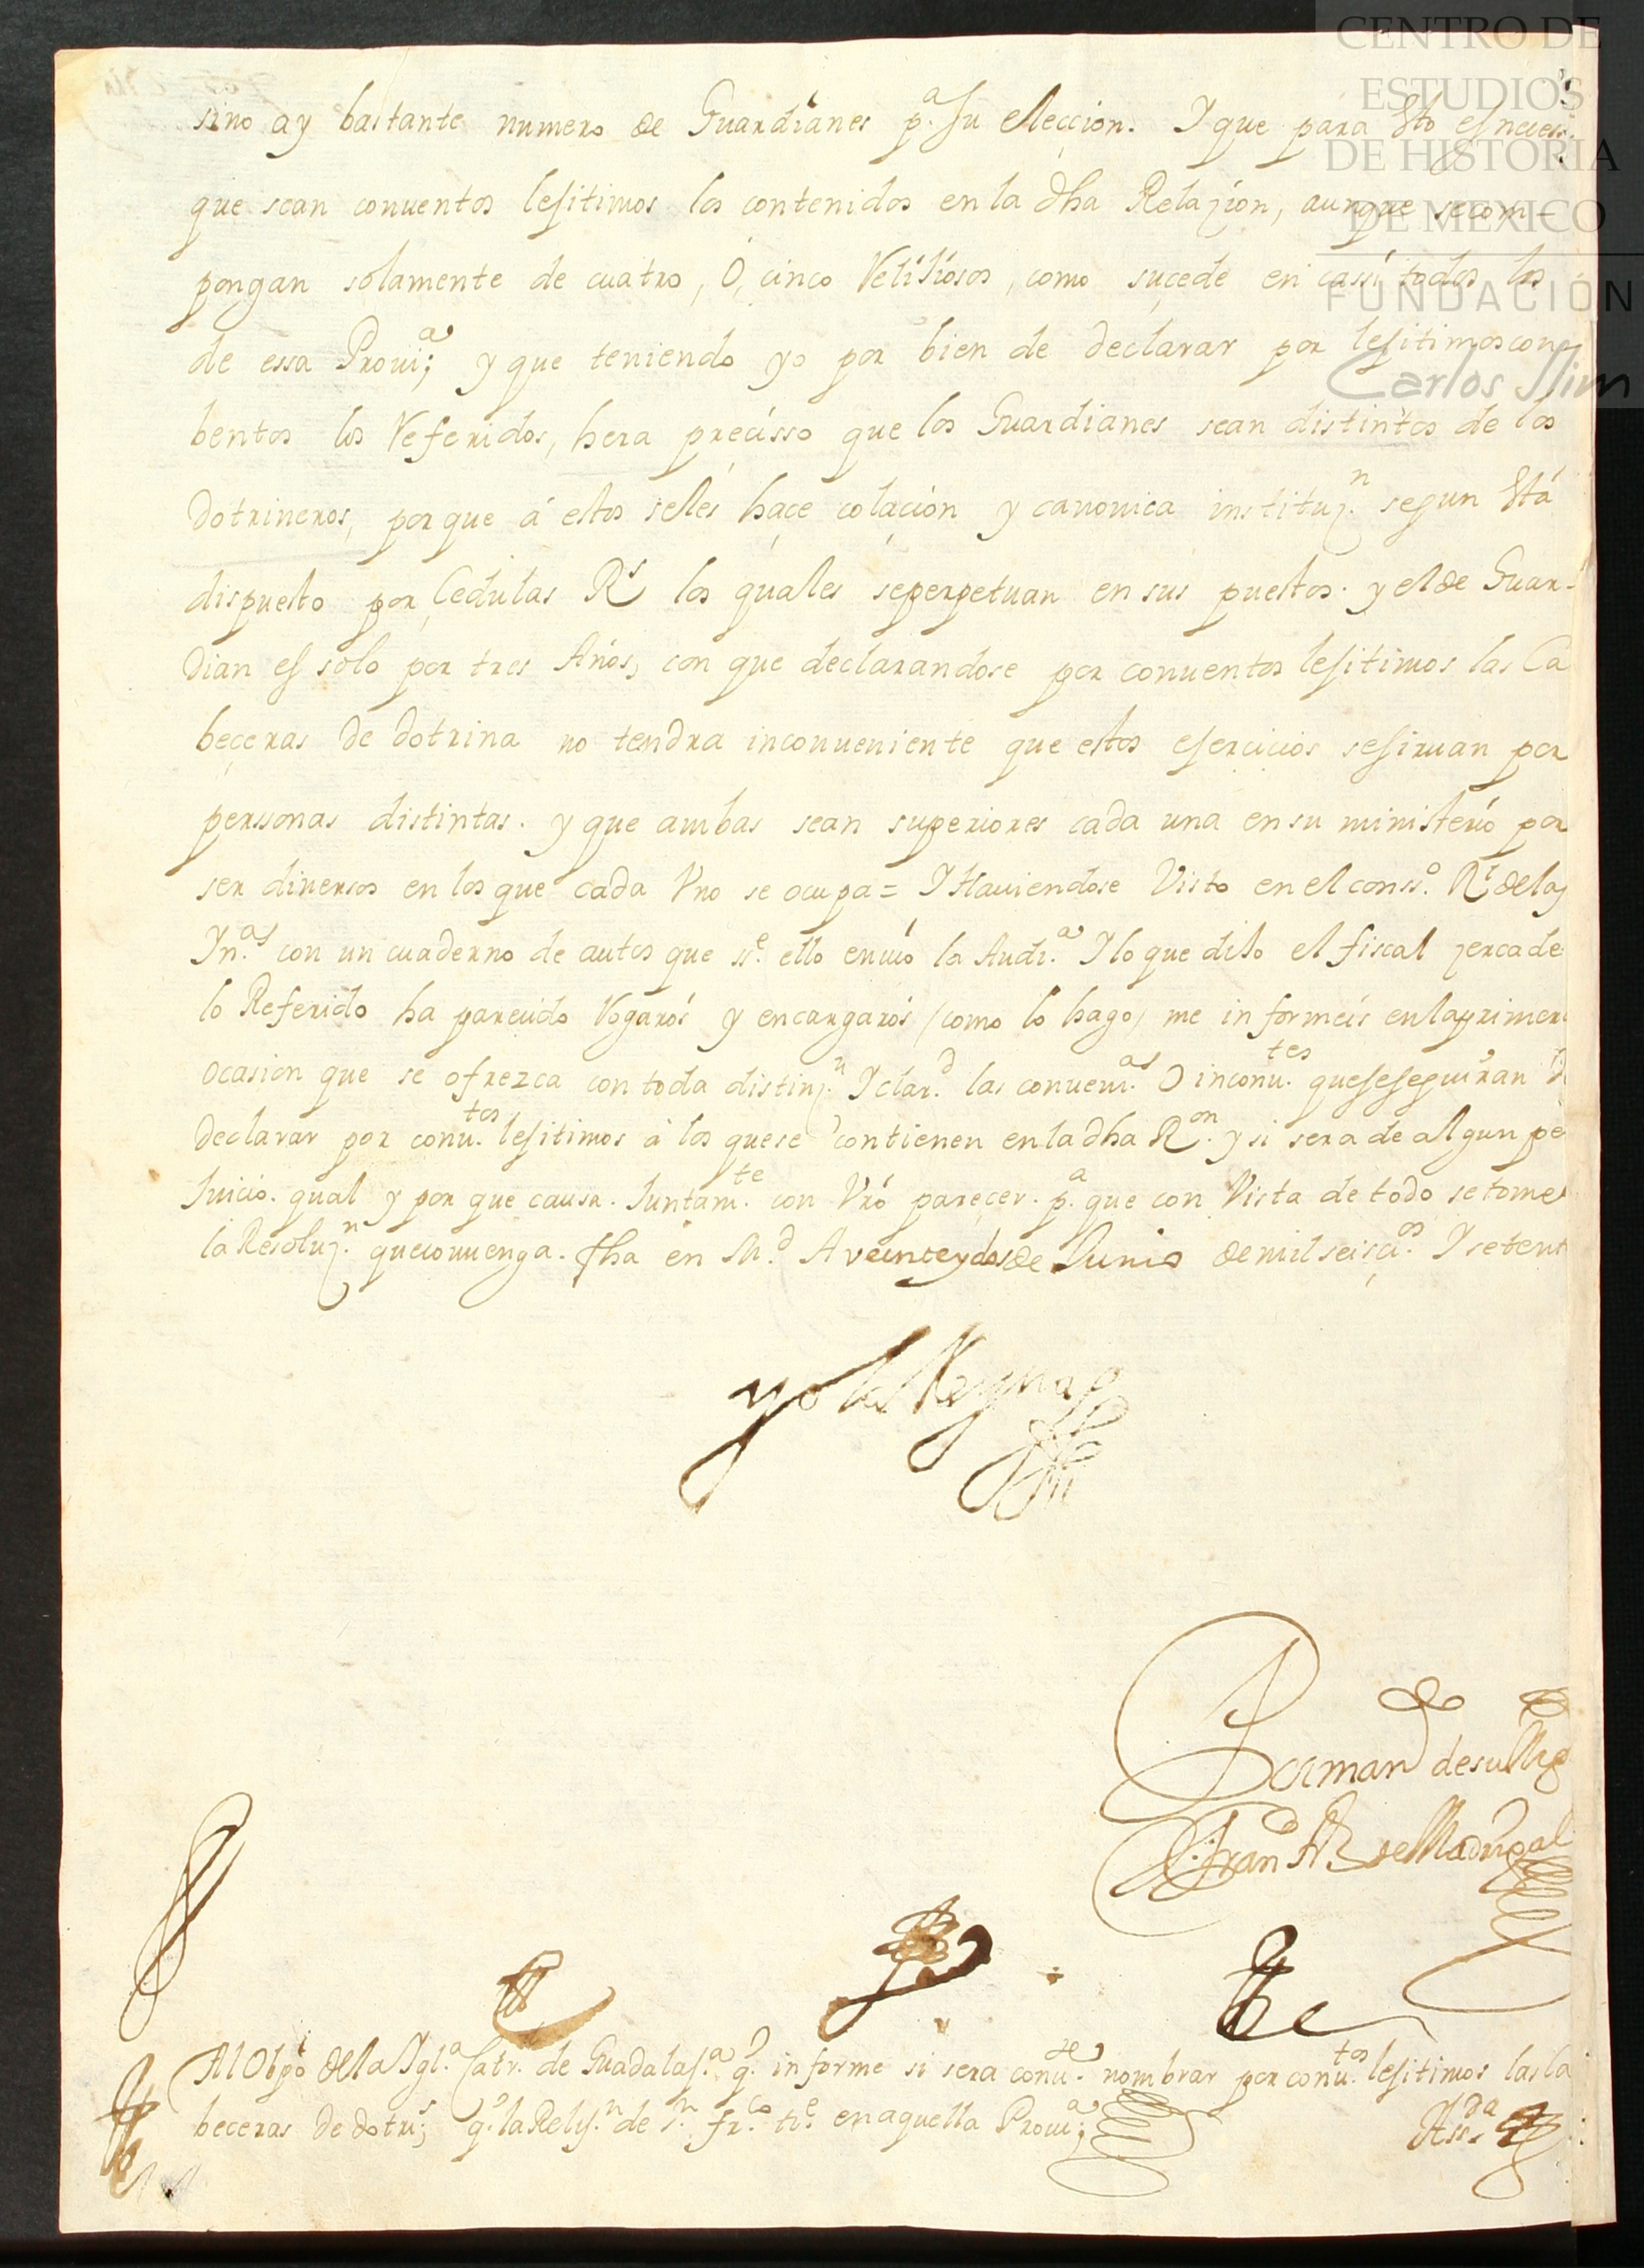 CENTRO DE
ESTUDIOS
DE HISTORIA
DE MÉXICO
FUNDACIÓN
Carlos Slim
sino ay bastante numero de Guardianes p.ª su elección. Y que para Sto es neces.
que sean conuentos lesitimos los contenidos en la dha Relazion, aunque se com-
pongan solamente de cuatro, Ó, çinco Relisiosos, como suçede en cassi todos los
de essa Proui;ª y que teniendo yo por bien de declarar por lesitimos con-
bentos los Referidos, hera preçisso que los Guardianes sean distintos de los
Dotrineros, porque á estos seles haçe colaçión y canonica instituz.n segun Stá
dispuesto por Çedulas R.s los quales se perpetuan en sus puestos. y el de Guar-
dian es solo por tres Años, con que declarandose por conuentos lesitimos las Ca
beçeras de dotrina no tendra inconueniente que estos esercicios se siruan por
perssonas distintas. y que ambas sean superiores cada una en su ministerió por
ser diuersos en los que cada Vno se ocupa = Y Hauiendose Visto en el conss.º R.l de las
Yn.as con un cuaderno de autos que ss.e ello enuió la Audi.ª Y lo que diso el fiscal zerca de
lo Referido ha pareuido Rogarós y encargarós (como lo hago) me informéis en la primer
ocasion que se ofrezca con toda distinz.n Y clar.d las conuenî.as O inconu.tes que se seguiran d
declarar por conu.tos lesitimos á los que se contienen en la dha R.on y si sera de algun pe
Juicio. qual y por que causa. Juntam.te con Vró pareçer. p.ª que con Vista de todo se tome
la Resoluz.n que conuenga. fha en M.d A veinte y dos de Junio de mil seisçi.os Y setent
yo la Reyna
Por man.do de su Mg.d
D. Fran.co Frz de Madrigal
Al Obpó de la Ygl.ª Catr.l de Guadalas.ª q.e informe si sera conu.te nombrar por conu.tos lesitimos las Ca
beceras De dotri;s q.e la Relig.n de s.n fr.co ti.e en aquella Proui;ª
Ass.da